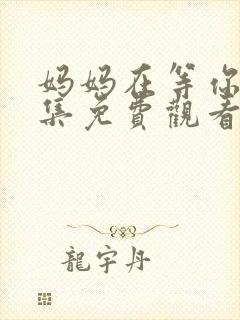 妈妈在等你
集免費觀看
龍宇丹